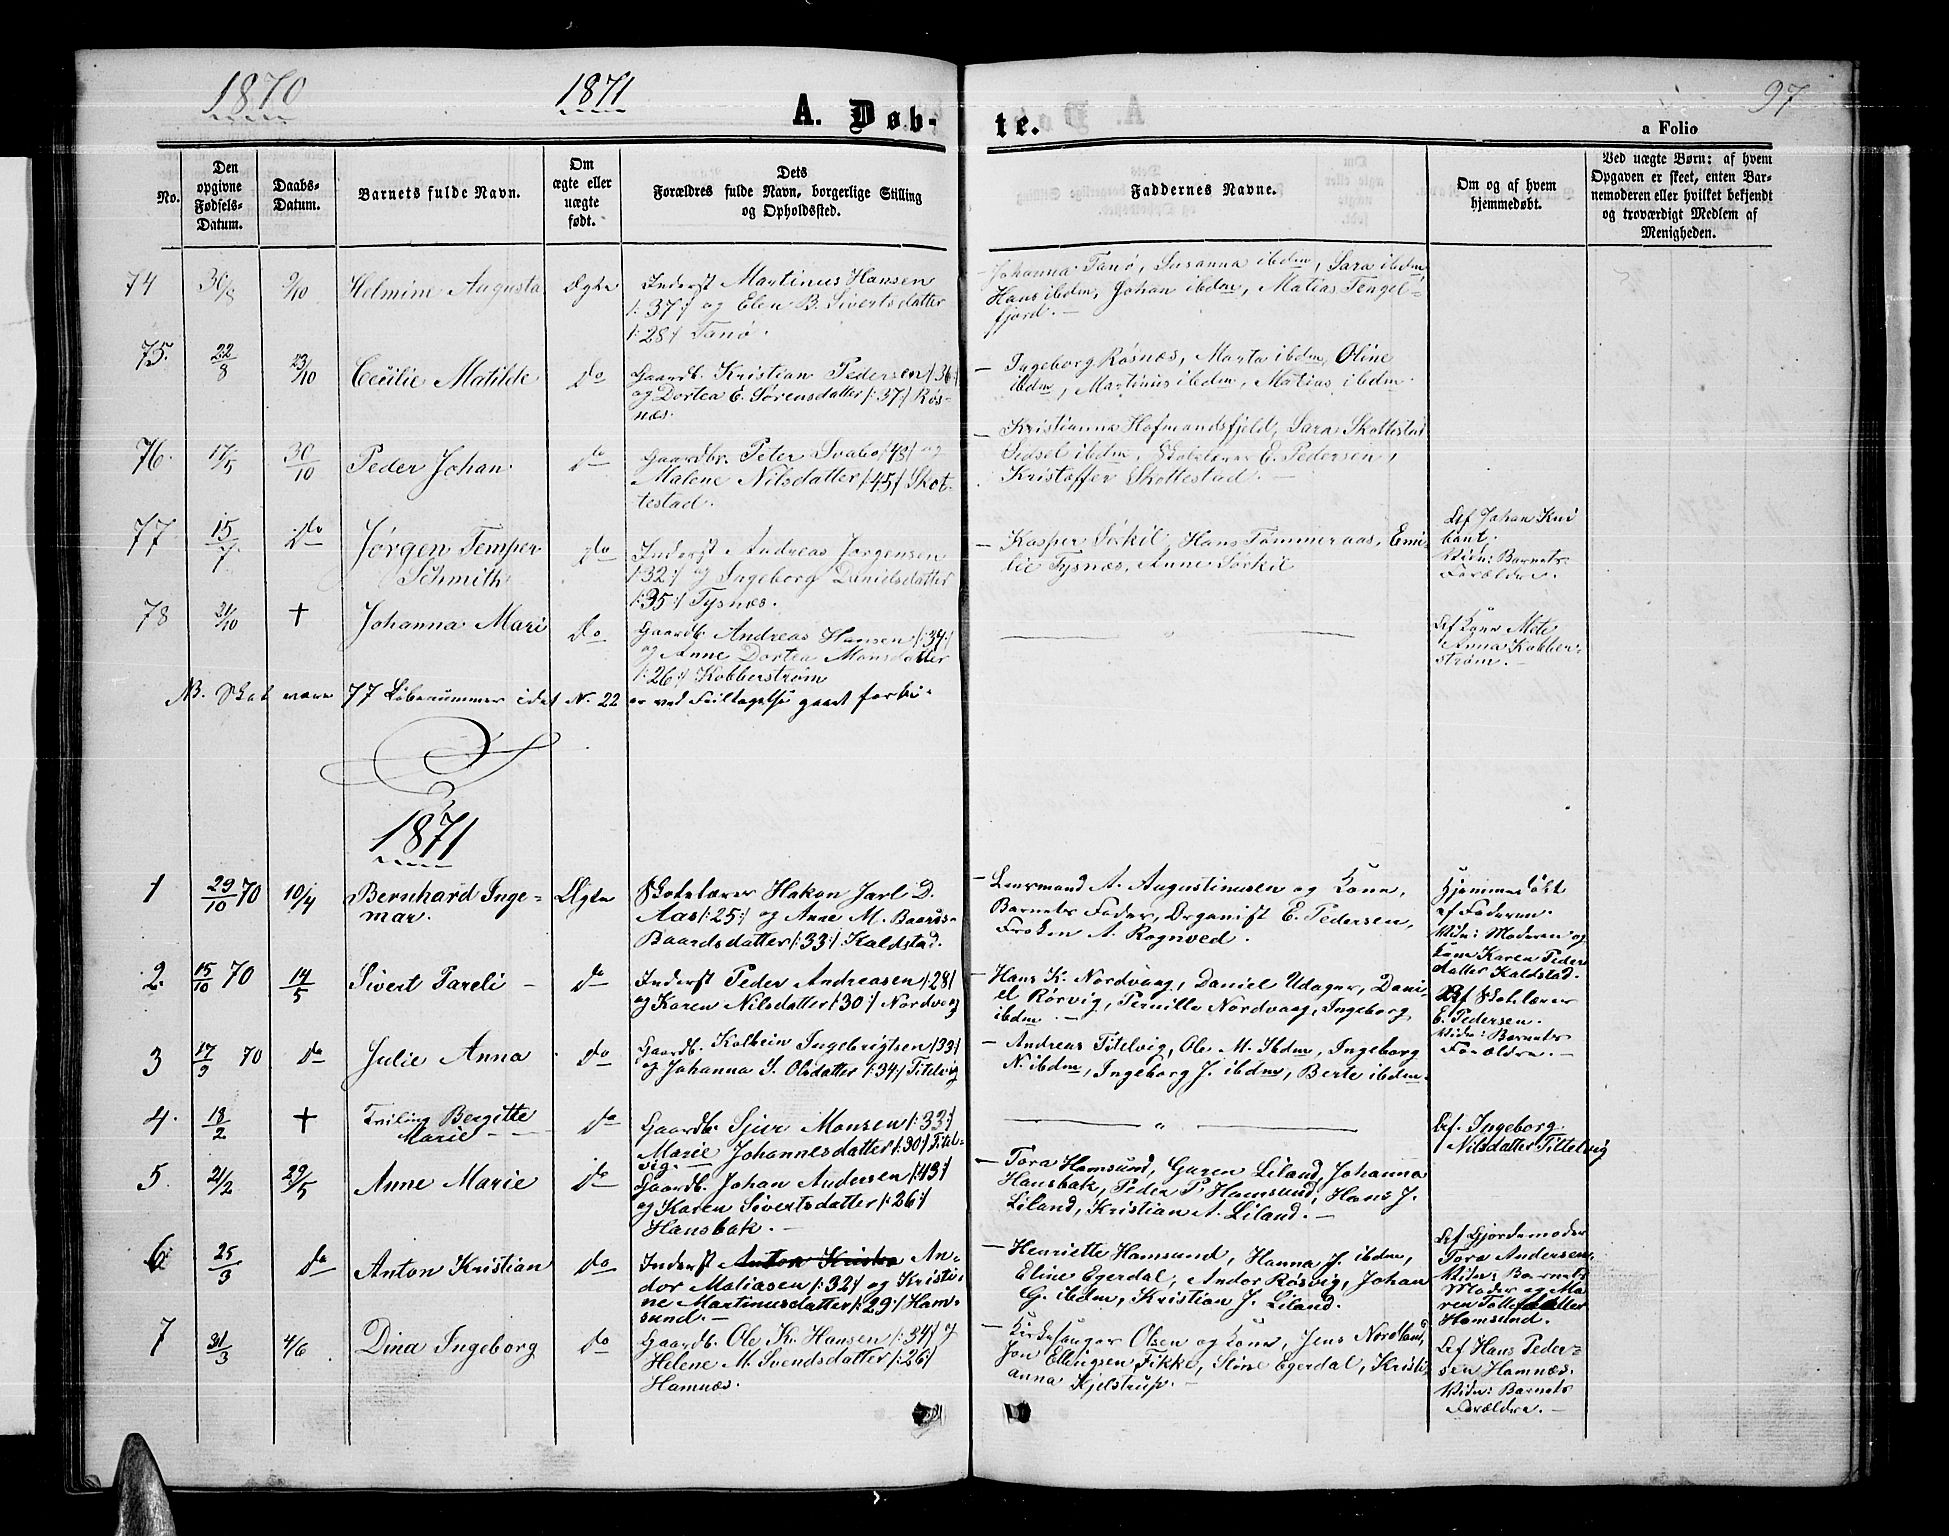 1870
1871
A. Døb-
te.
97
a Folio
No.
Den opgivne Fødsels-Datum.
Daabs-Datum.
Barnets fulde Navn.
Om ægte eller uægte født.
Dets Forældres fulde Navn, borgerlige Stilling og Opholdssted.
Faddernes Navne.
Om og af hvem hjemmedøbt.
Ved uægte Børn: af hvem Opgaven er skeet, enten Barnemoderen eller hvilket bekjendt og troværdigt Medlem af Menigheden.
74 30/8 9/10 Helmine Augusta Ægte Inderst Martinus Hansen
/:37:/ og Elen B. Sivertsdatter
/:28:/ Tanø.
- Johanna Tanø, Susanna ibdm, Sara ibdm
Hans ibdm, Johan ibdm, Matias Tengel-
fjord. -
75. 22/8 23/10 Cecilie Matilde Do Gaardb. Kristian Pedersen /:36:/
og Dortea E. Sørensdatter /:37:/ Røs-
næs.
- Ingeborg Røsnæs, Marta ibdm, Oline
ibdm, Martinus ibdm, Matias ibdm.
76. 17/5 30/10 Peder Johan Do Gaardbr. Peter Svabo /48/ og
Malene Nilsdatter /:45/ Skot-
testad.
- Kristianna Hofmandsfjeld, Sara Skottestad
Sidsel ibdm, Skolelærer E. Pedersen,
Kristoffer Skottestad. -
77. 15/7 Do Jørgen Temper
Schmith Do Inderst Andreas Jørgensen
/:32:/ og Ingeborg Danielsdatter
/:35:/ Tysnæs.
- Kasper Sørkil, Hans Tømmeraas, Emi-
lie Tysnæs, Anne Sørkil
Af Johan
Vidn: Barnets
Forældre.
78 21/10 + Johanna Mari Do Gaardb. Andreas Hansen /:34:/
og Anne Dortea Monsdatter
/:26:/ Kobberstrøm
"
Af Kone Mete
Anna Kobber-
strøm. -
NB. Skal være 77 Løbenummer idet N. 22 er ved Feiltagelse gaaet forbi.
1871
1 29/10 70 10/4 Bernhard Inge-
mar. Ægte Skolelærer Hakon Jarl D.
Aas /:25:/ og Anne M.
Baardsdatter /:33:/ Kaldstad.
- Lensmand A. Augustinusen og Kone,
Barnets Fader, Organist E. Pedersen,
Frøken A. Rognved.
Hjemmedøbt
af Faderen.
Vidn: Moderen og
Kone Karen Peder
datter Kaldstad.
2. 15/10 70 14/5 Sivert Pareli - Do Inderst Peder Andreasen /:28/
og Karen Nilsdatter /:30:/ Nordvaag
- Hans K. Nordvaag, Daniel Udager, Dani-
el Rørvig, Pernille Nordvaag, Ingeborg
ibdm. -
Af Skolelærer
E. Pedersen.
Vidn: Barnets
Forældre. -
3 17/9 70 Do Julie Anna Do Gaardb. Kolbein Ingebrigtsen /:33:/
og Johanna S. Olsdatter /:34:/ Titelvig
- Andreas Titelvig, Ole M. Ibdm, Ingeborg
N. ibdm, Ingeborg J. ibdm, Berte ibdm.
4. 18/2 + Tvilling Bergitte
Marie - Do Gaardb. Sjur Monsen /:33:/
Marie Johannesdatter /:30:/ Titel-
vig. -
"
Af. Ingeborg
Nilsdatter Tittelvig
5. 21/2 29/5 Anne Marie Do Gaardb. Johan Andersen /:43:/
og Karen Sivertsdatter /:26:/
Hansbak. -
- Tora Hamsund, Guren Liland, Johanna
Hansbak, Peder P. Hamsund, Hans J.
Liland, Kristian A. Liland. -
6 25/3 Do Anton Kristian Do Inderst Anton Kristia An-
dor Matiasen /:32/ og Kristi-
ne Martinusdatter /:29:/ Ham-
sund. -
- Henriette Hamsund, Hanna J. ibdm,
Eline Egerdal, Andor Røsvig, Johan
G. ibdm, Kristian J. Liland.
Af Gjordemoder
Tora Andersen.
Vidn: Barnets
Moder og Ma
ren
Hamsund.
7 31/3 4/6 Dina Ingeborg Do Gaardb. Ole K. Hansen /:34/ og
Helene M. Svendsdatter /:26/
Hamnæs.
- Kirkesanger Olsen og Kone, Jens Nordland,
Jon Ellingsen Fikke, Stine Egerdal, Kristi-
anna Kjelstrup. -
Af Hans Peder-
sen Hamnæs.
Vidn: Barnets
Forældre. -